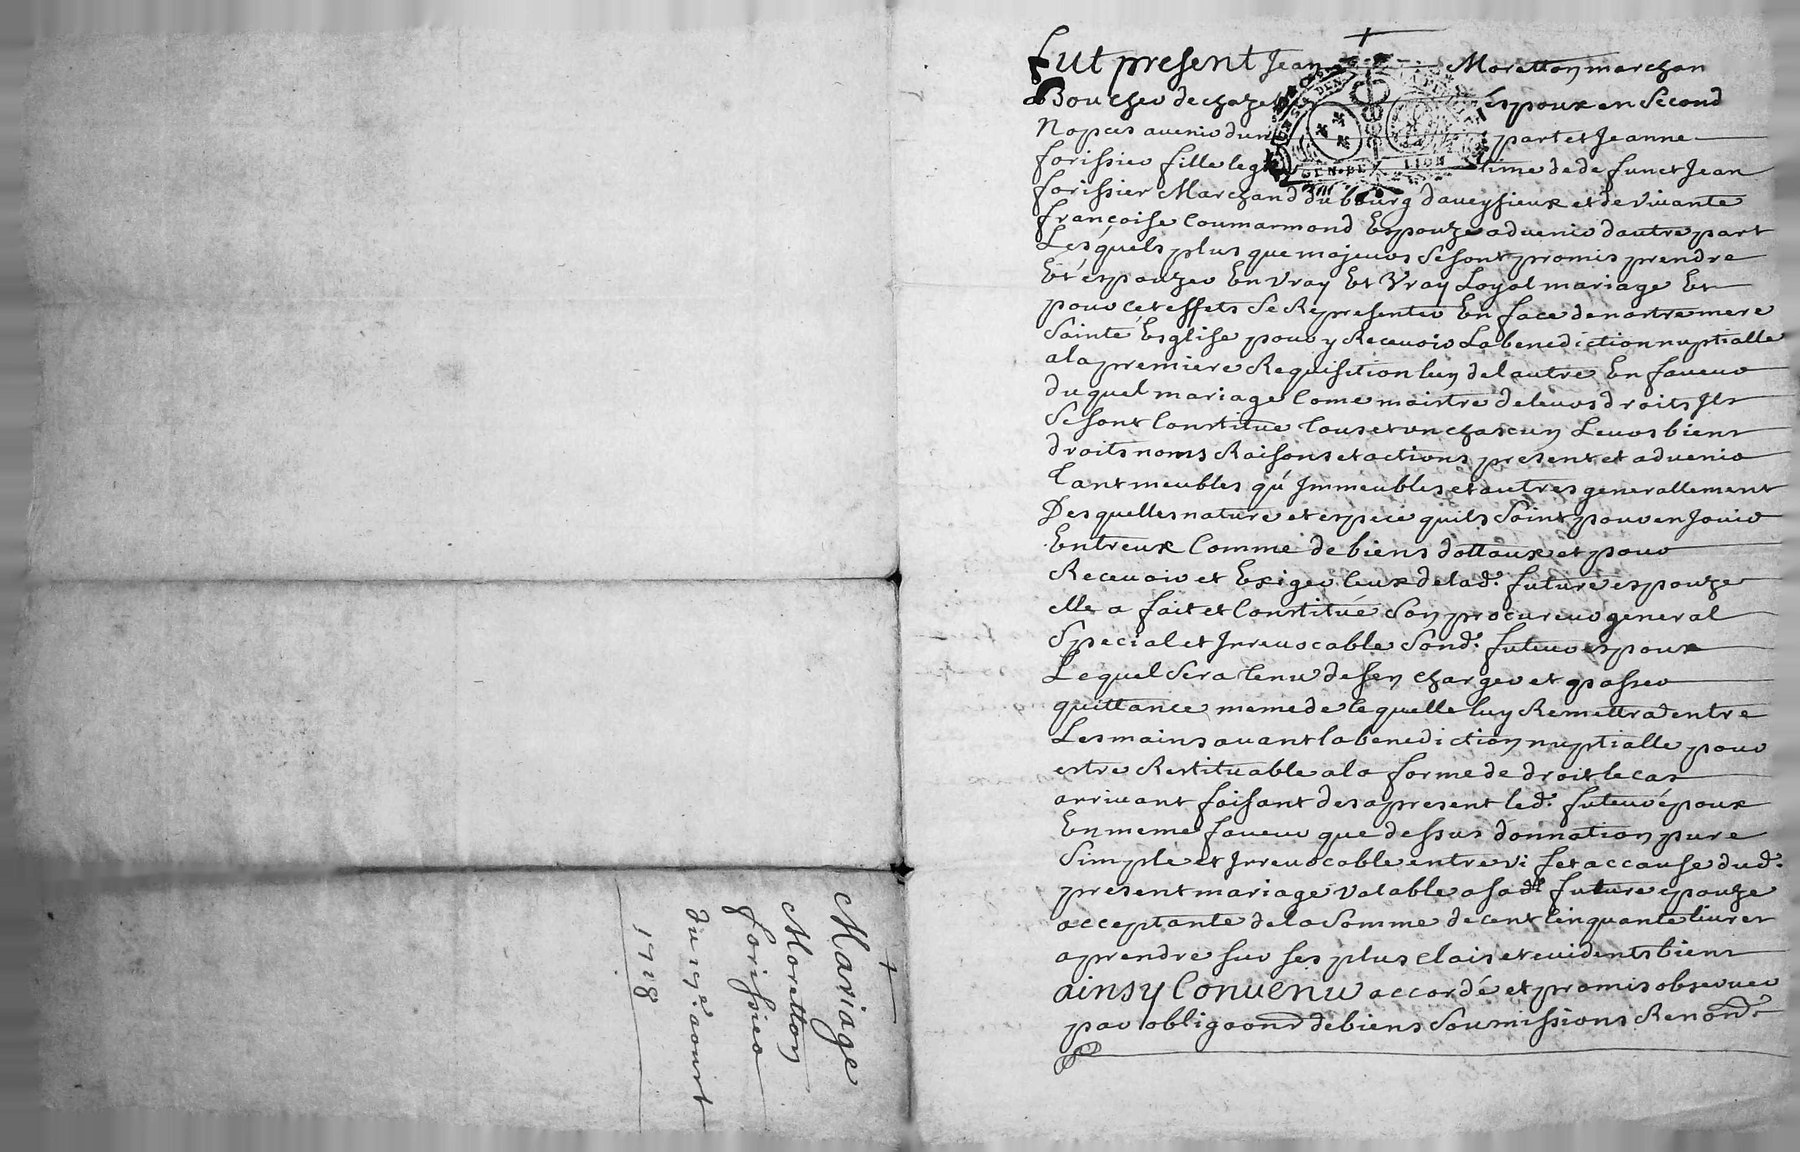 Mariage
Moretton
forissier
du 15e. aoust
1718
fut present Jean Moretton marchan
Boucher de chaze espoux en Second
Nopces avenir dune part et Jeanne
forissier fille legitime de defunct Jean
forissier Marchand du bourg daveysieux et de vivante
françoise Coumarmond Espouze advenir dautre part
Lesquels plus que majeurs se sont promis prendre
Et espouzer En vray Et Vray Loyal mariage Et
pour cet effets Se Representer En face de nostre mere
Sainte Esglise pour y Recevoir La benediction nuptialle
a la premiere Requisition luy de lautre En faveur
duquel mariage Come maistre de leurs droits Ils
Se sont Constitué tous et un chascun Leurs biens
droits noms Raisons et actions present et advenir
Tant meubles qu'Immeubles et autres generallement
Des quelles nature et espece quils Soint pour en Jouir
Entreux Comme de biens dottaux et pour
Recevoir et Exiger Ceux de lad. future espouze
elle a fait et Constitué Son procureur general
Special et Irrevocable Sond. futur espoux
Lequel Sera tenu de sen charger et passer
quittance meme de lequelle luy Remettra dentre
Les mains avant la benediction nuptialle pour
estre Restituable a la forme de droit le cas
arrivant faisant des apresent led. futur époux
En meme faveur que dessus donnation pure
Simple et Irrevocable entre vif et a cause dud.
present mariage valable a sad. future epouze
acceptante de la Somme de cent Cinquante livres
a prendre sur ses plus clais et evidents biens
ainsy Convenu accordé et promis observer
par obligaons de biens Soumissions Renond.
GEN. DE LION